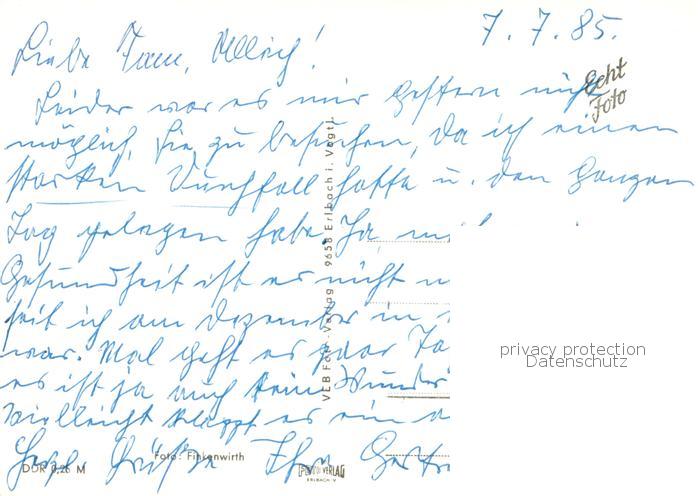 7. 7. 85.
Liebe Frau Ullrich!
Echt
Foto
Leider war es mir gestern nicht
möglich, Sie zu besuchen, da ich einen
starken Durchfall hatte u. den ganzen
Tag gelegen habe. Ja
Gesundheit ist es nicht
seit ich am Dezember in
war. Mal geht es paar Ta
es ist ja auch kein Wunder
Vielleicht klappt es ein
Grüße Ihre
VEB Foto-Verlag 9658 Erlbach i. Vogtl.
Foto: Finkenwirth
DDR 0,25 M
FOTO VERLAG
ERLBACH·V
privacy protection
Datenschutz